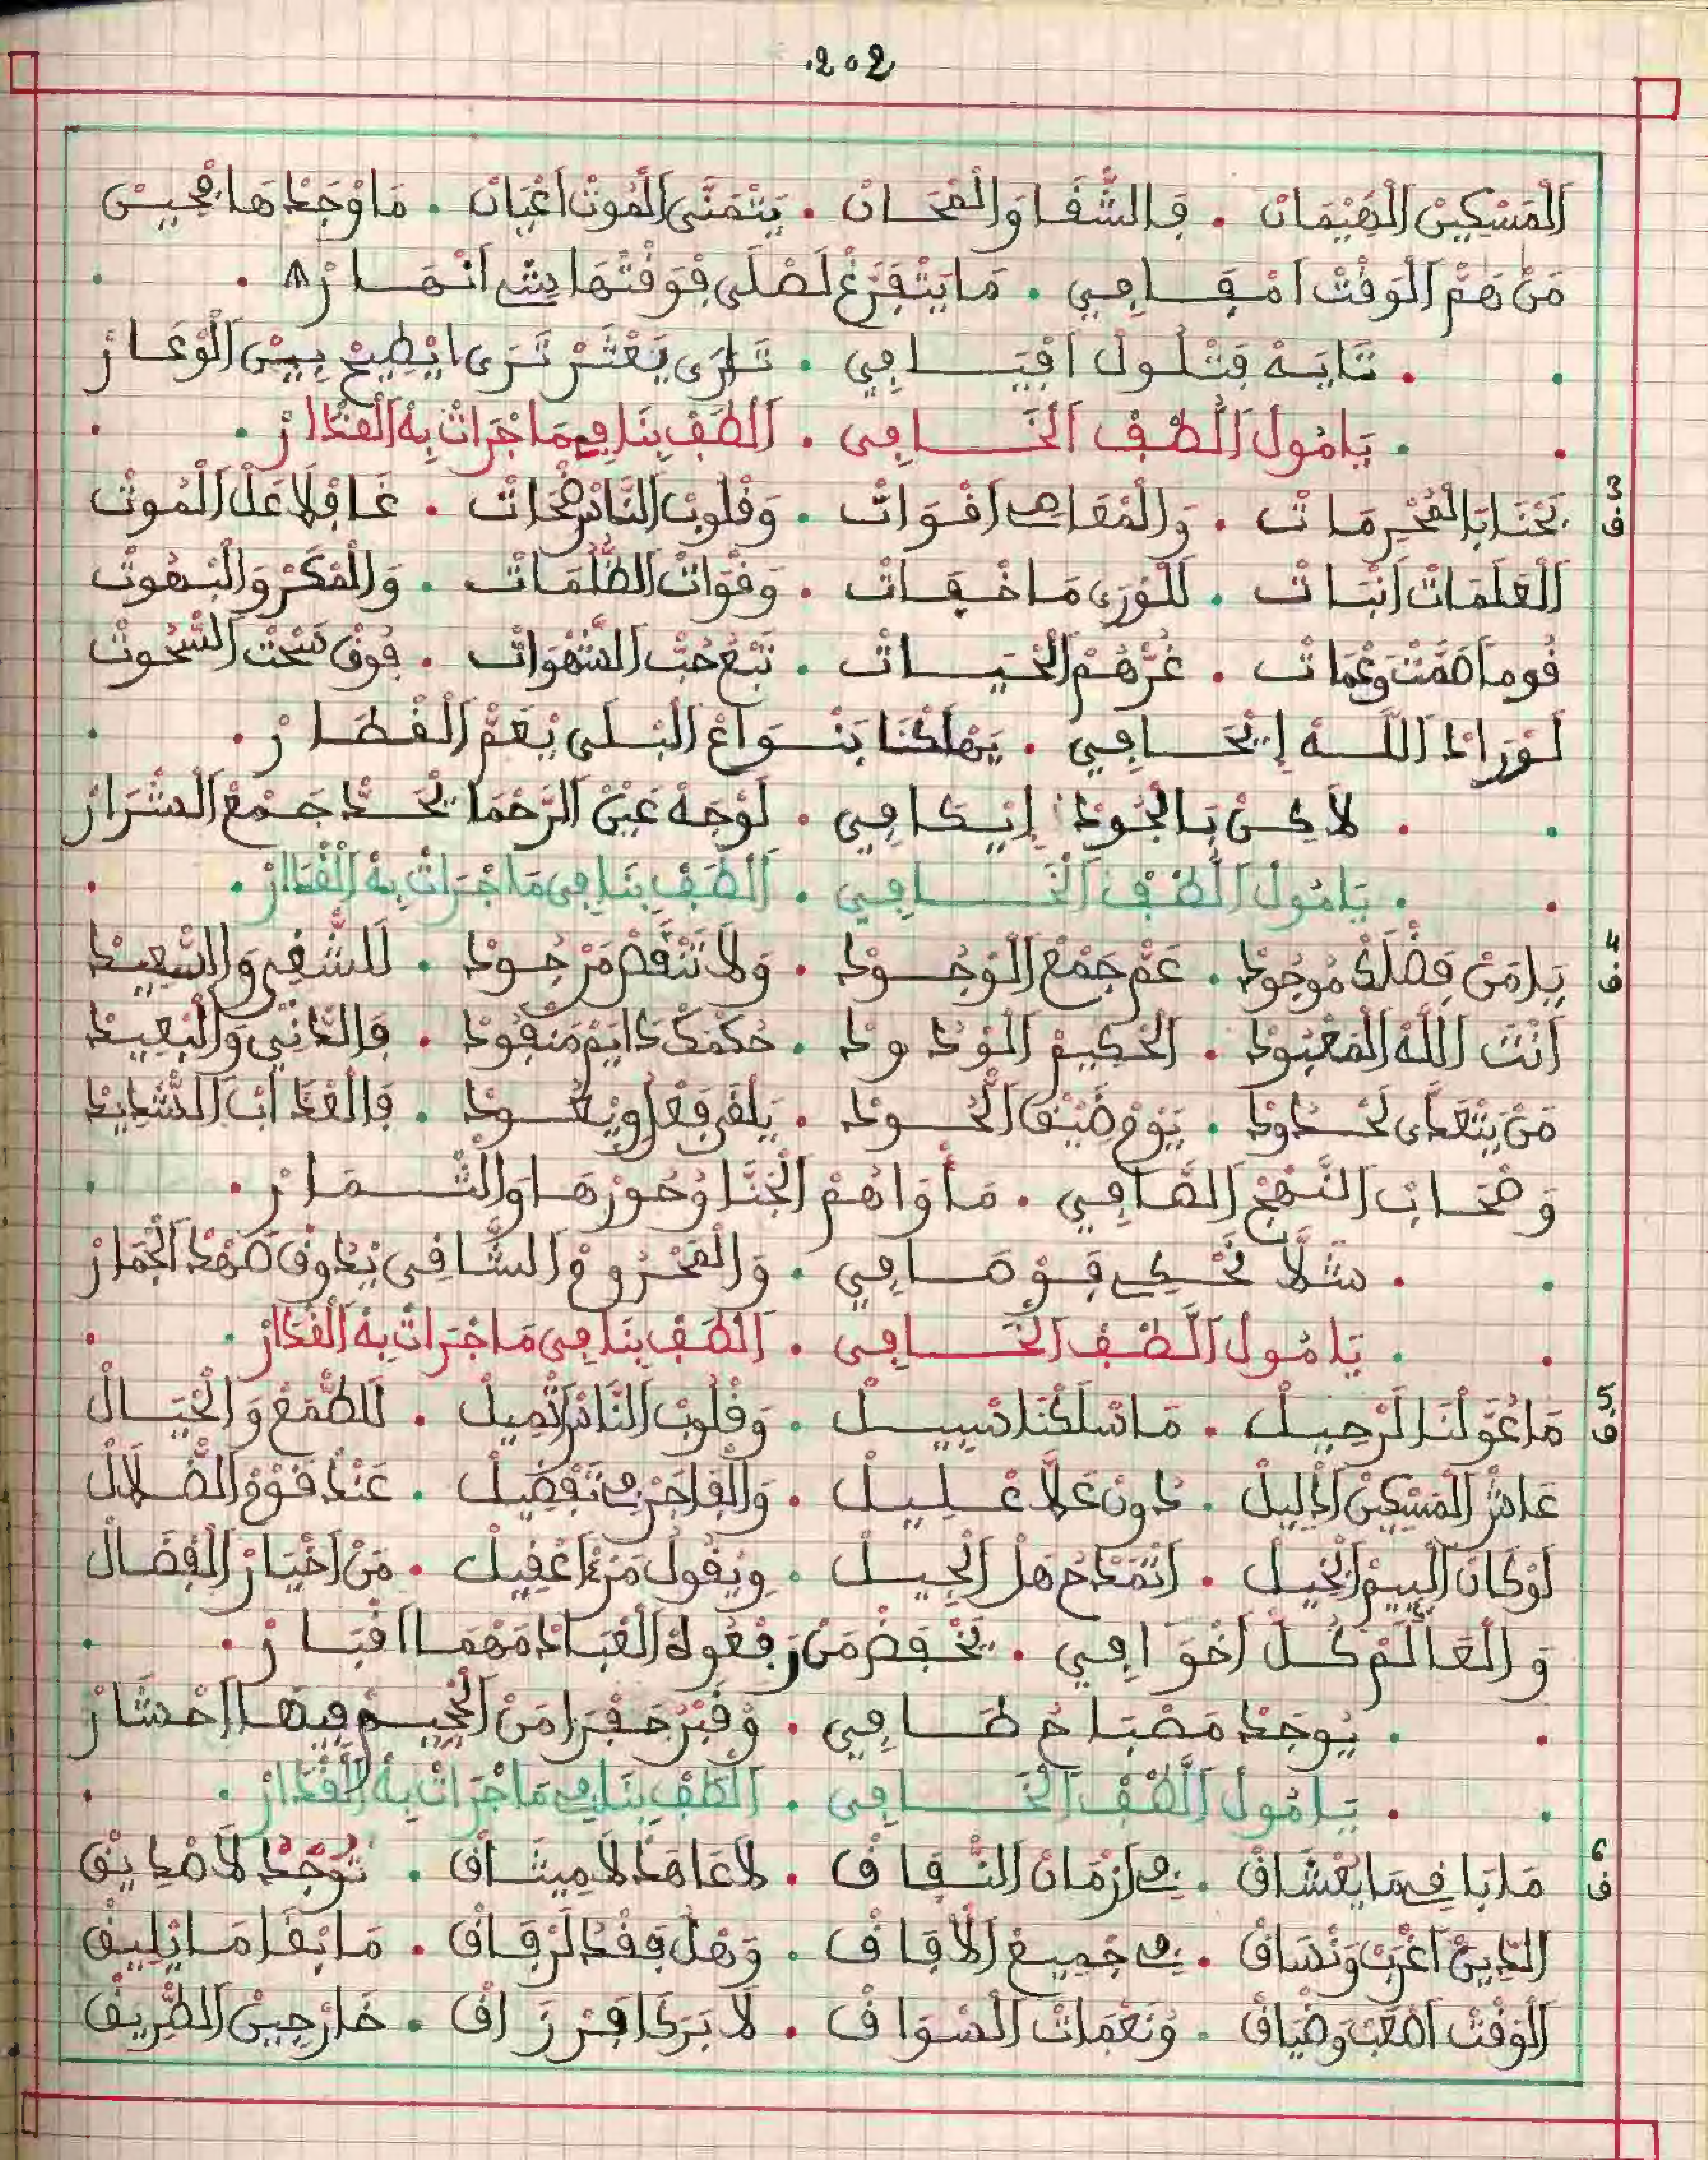 .202
اَلْمَسْكِينْ الْهَيْمَانْ . فَالشّْقَا وَالْمْحَانْ . يَتْمَنَّى الْمُوتْ اَعْيَانْ . مَا وْجَدْهَا فْحِينْ
مَنْ هَمّْ الْوَقْتْ اَمْقَافِي . مَا يَتْفَرَّغْ لَصْلَى فْوَقْتْهَا مَنْ اَنْهَارُه .
. تَايَهْ فَتْلُولْ اَفْيَافِي . تَارَى يَعْثَرْ تَرَى ايْطِيحْ بِينْ الْوْعَارْ
. يَا مُولْ اَللُّطْفْ الْخَافِي . اَلْطَفْ بِنَا فِي مَا جْرَاتْ بِهْ الْقْدَارْ .
ف3 تَحْنَا بَالْمْحَرْمَاتْ . وَالْمْعَاصِي اَقْوَاتْ . وَقْلُوبْ النَّاسْ صْحَاتْ . غَافْلَا عَلْ الْمُوتْ
اَلْعَلَمَاتْ اَنْبَاتْ . لَلْوْرَى مَا خْفَاتْ . وَقْوَاتْ الظُّلْمَاتْ . وَالْمْكَرْ وَالْبْهُوتْ
قُومَا صَمّْتْ وَعْمَاتْ . غَرّْهُمْ الْحَيَاتْ . تَبْعْ حُبّْ الشّْهْوَاتْ . فُوقْ سَحْتْ السّْحُوتْ
لَوْ رَادْ اَللَّهْ اِيْحَافِي . يَهْلَكْنَا بَنْوَاعْ الْبْلَى يْعَمّْ الْقْطَارْ .
. لَاكِنْ بَالْجُودْ اِيْكَافِي . لَوْجَهْ عَيْنْ الرَّحْمَا يْحَدّْ جَمْعْ الشْرَارْ
. يَا مُولْ اَللُّطْفْ الْخَافِي . اَلْطَفْ بِنَا فِي مَا جْرَاتْ بِهْ الْقْدَارْ .
ف4 يَا مَنْ فَضْلَكْ مُوجُودْ . عَمّْ جَمْعْ الْوْجُودْ . وَلَا تَنْقَصْ مَنْ جُودْ . لَلشّْقِي وَالسّْعِيدْ
اَنْتَ اَللَّهْ الْمَعْبُودْ . اَلْحَكِيمْ الْوْدُودْ . حُكْمَكْ دَايَمْ مَنْفُودْ . فَالدَّانِي وَالْبْعِيدْ
مَنْ يَتْعَدَّى لَحْدُودْ . يَوْمْ ضِيقْ اللّْحُودْ . يَلْقَى فَعْلُ وِيْعُودْ . فَالْعْدَابْ الشّْدِيدْ
وَصْحَابْ النَّهْجْ الصَّافِي . مَأْوَاهُمْ الْجَنَّا وُحُورْهَا وَالثّْمَارْ .
. مَثَلَّا نَحْكِي فَوْصَافِي . وَالْمَحْرُومْ الشَّاقِي يْدُوقْ صَهْدْ الْجْمَارْ
. يَا مُولْ اَللُّطْفْ الْخَافِي . اَلْطَفْ بِنَا فِي مَا جْرَاتْ بِهْ الْقْدَارْ .
ف5 مَا عُوّْلْنَا لَرْحِيلْ . مَا سْلَكْنَا سْبِيلْ . وَقْلُوبْ النَّاسْ اَتْمِيلْ . لَلطّْمَعْ وَالْخْيَالْ
عَاشْ الْمَسْكِينْ الدّْلِيلْ . دُونْ عَلَّا عْلِيلْ . وَالْفَاجَرْ فِي تَفْضِيلْ . عَنْدْ قَوْمْ الضّْلَالْ
لَوْ كَانْ اللّْيِيمْ الْبْخِيلْ . اَتْمَدْحُ هَلْ الْجِيلْ . وِيْقُولْ مَنْ اَعْقِيلْ . مَنْ اَخْيَارْ الْفْضَالْ
وَالْعَالَمْ كُلّْ اَخْوَافِي . يَخْفَضْ مَنْ رَفْعُوهْ الْعْبَادْ مَهْمَا اَقْبَارْ .
. يُوجَدْ مَصْبَاحْ طَافِي . وُقْبَرْ حَفْرَا مَنْ الْجْحِيمْ فِيهَا اَحْشَارْ
. يَا مُولْ اَللُّطْفْ الْخَافِي . اَلْطَفْ بِنَا فِي مَا جْرَاتْ بِهْ الْقْدَارْ .
ف6 مَا بَا فِيمَا يْعْشَاقْ . فِي اَزْمَانْ النّْفَاقْ . لَا عَاهَدْ لَا مِيثَاقْ . تُوجَدْ لَا صْدِيقْ
الدِّينْ اَغْرَبْ وَنْسَاقْ . فِي جْمِيعْ الْاَفَاقْ . وَهْلْ فَقْدْ لَرْفَاقْ . مَا بْقَا مَا يْلِيقْ
الْوَقْتْ اَصْعَبْ وَضْيَاقْ . وَنْعْمَاتْ السْوَاقْ . لَا بَرْكَا فَرْزَاقْ . خَارْجِينْ الطّْرِيقْ